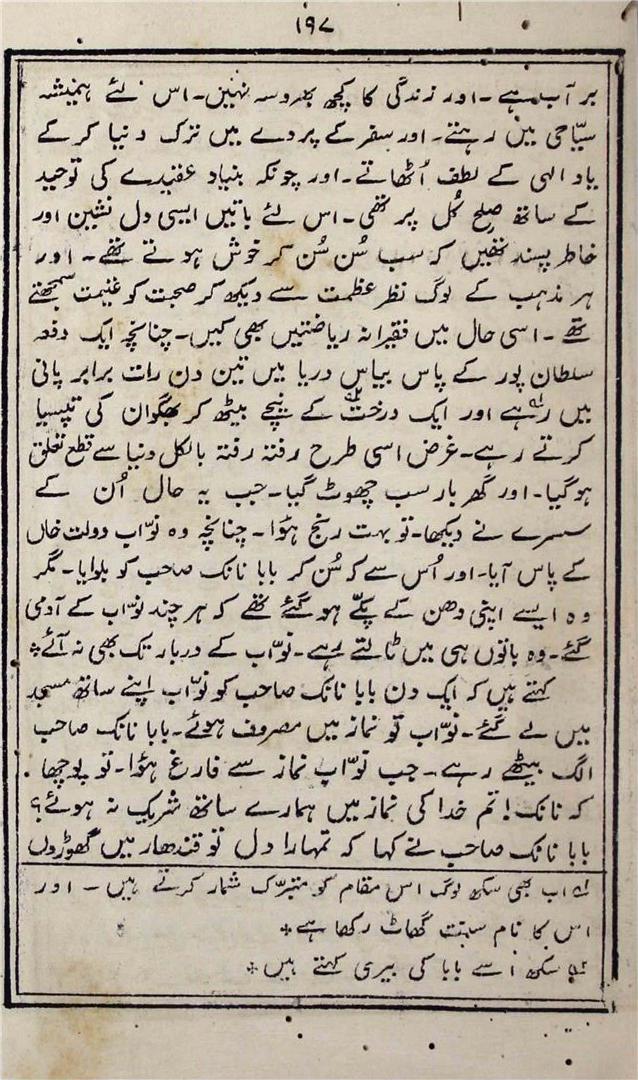 ۱۹۷
بر آب ہے۔ اور زندگی کا کچھ بھروسہ نہیں۔ اس لئے ہمیشہ
سیّاحی میں رہتے۔ اور سفر کے پردے میں ترک دنیا کر کے
یاد الہی کے لطف اُٹھاتے۔ اور چونکہ بنیاد عقیدے کی توحید
کے ساتھ صلح کُل پر تھی۔ اس لئے باتیں ایسی دل نشین اور
خاطر پسند تھیں کہ سب سُن سُن کر خوش ہوتے تھے۔ اور
ہر مذہب کے لوگ نظر عظمت سے دیکھ کر صحبت کو غنیمت سمجھتے
تھے۔ اسی حال میں فقیرانہ ریاضتیں بھی کیں۔ چنانچہ ایک دفعہ
سلطان پور کے پاس بیاس دریا میں تین دن رات برابر پانی
میں رہے؎۱ اور ایک درخت؎۲ کے نیچے بیٹھ کر بھگوان کی تپسیا
کرتے رہے۔ غرض اسی طرح رفتہ رفتہ بالکل دنیا سے قطع تعلق
ہوگیا۔ اور گھر بار سب چھوٹ گیا۔ جب یہ حال اُن کے
سسرے نے دیکھا۔ تو بہت رنج ہوٗا۔ چنانچہ وہ نوّاب دولت خاں
کے پاس آیا۔ اور اُس سے کہ سُن کر بابا نانک صاحب کو بلوایا۔ مگر
وہ ایسے اپنی دھن کے پکّے ہو گئے تھے کہ ہر چند نوّاب کے آدمی
گئے۔ وہ باتوں ہی میں ٹالتے رہے۔ نوّاب کے دربار تک بھی نہ آئے*
کہتے ہیں کہ ایک دن بابا نانک صاحب کو نوّاب اپنے ساتھ مسجد
میں لے گئے۔ نوّاب تو نماز میں مصروف ہوئے۔ بابا نانک صاحب
الگ بیٹھے رہے۔ جب نوّاب نماز سے فارغ ہوٗا۔ تو پوچھا
کہ نانک! تم خدا کی نماز میں ہمارے ساتھ شریک نہ ہوئے؟
بابا نانک صاحب نے کہا کہ تمہارا دل تو قندھار میں گھوڑوں
؎۱ اب بھی سکھ لوگ اس مقام کو متبرّک شمار کرتے ہیں۔ اور
اس کا نام سنت گھاٹ رکھا ہے*
؎۲ سکھ اسے بابا کی بیری کہتے ہیں*